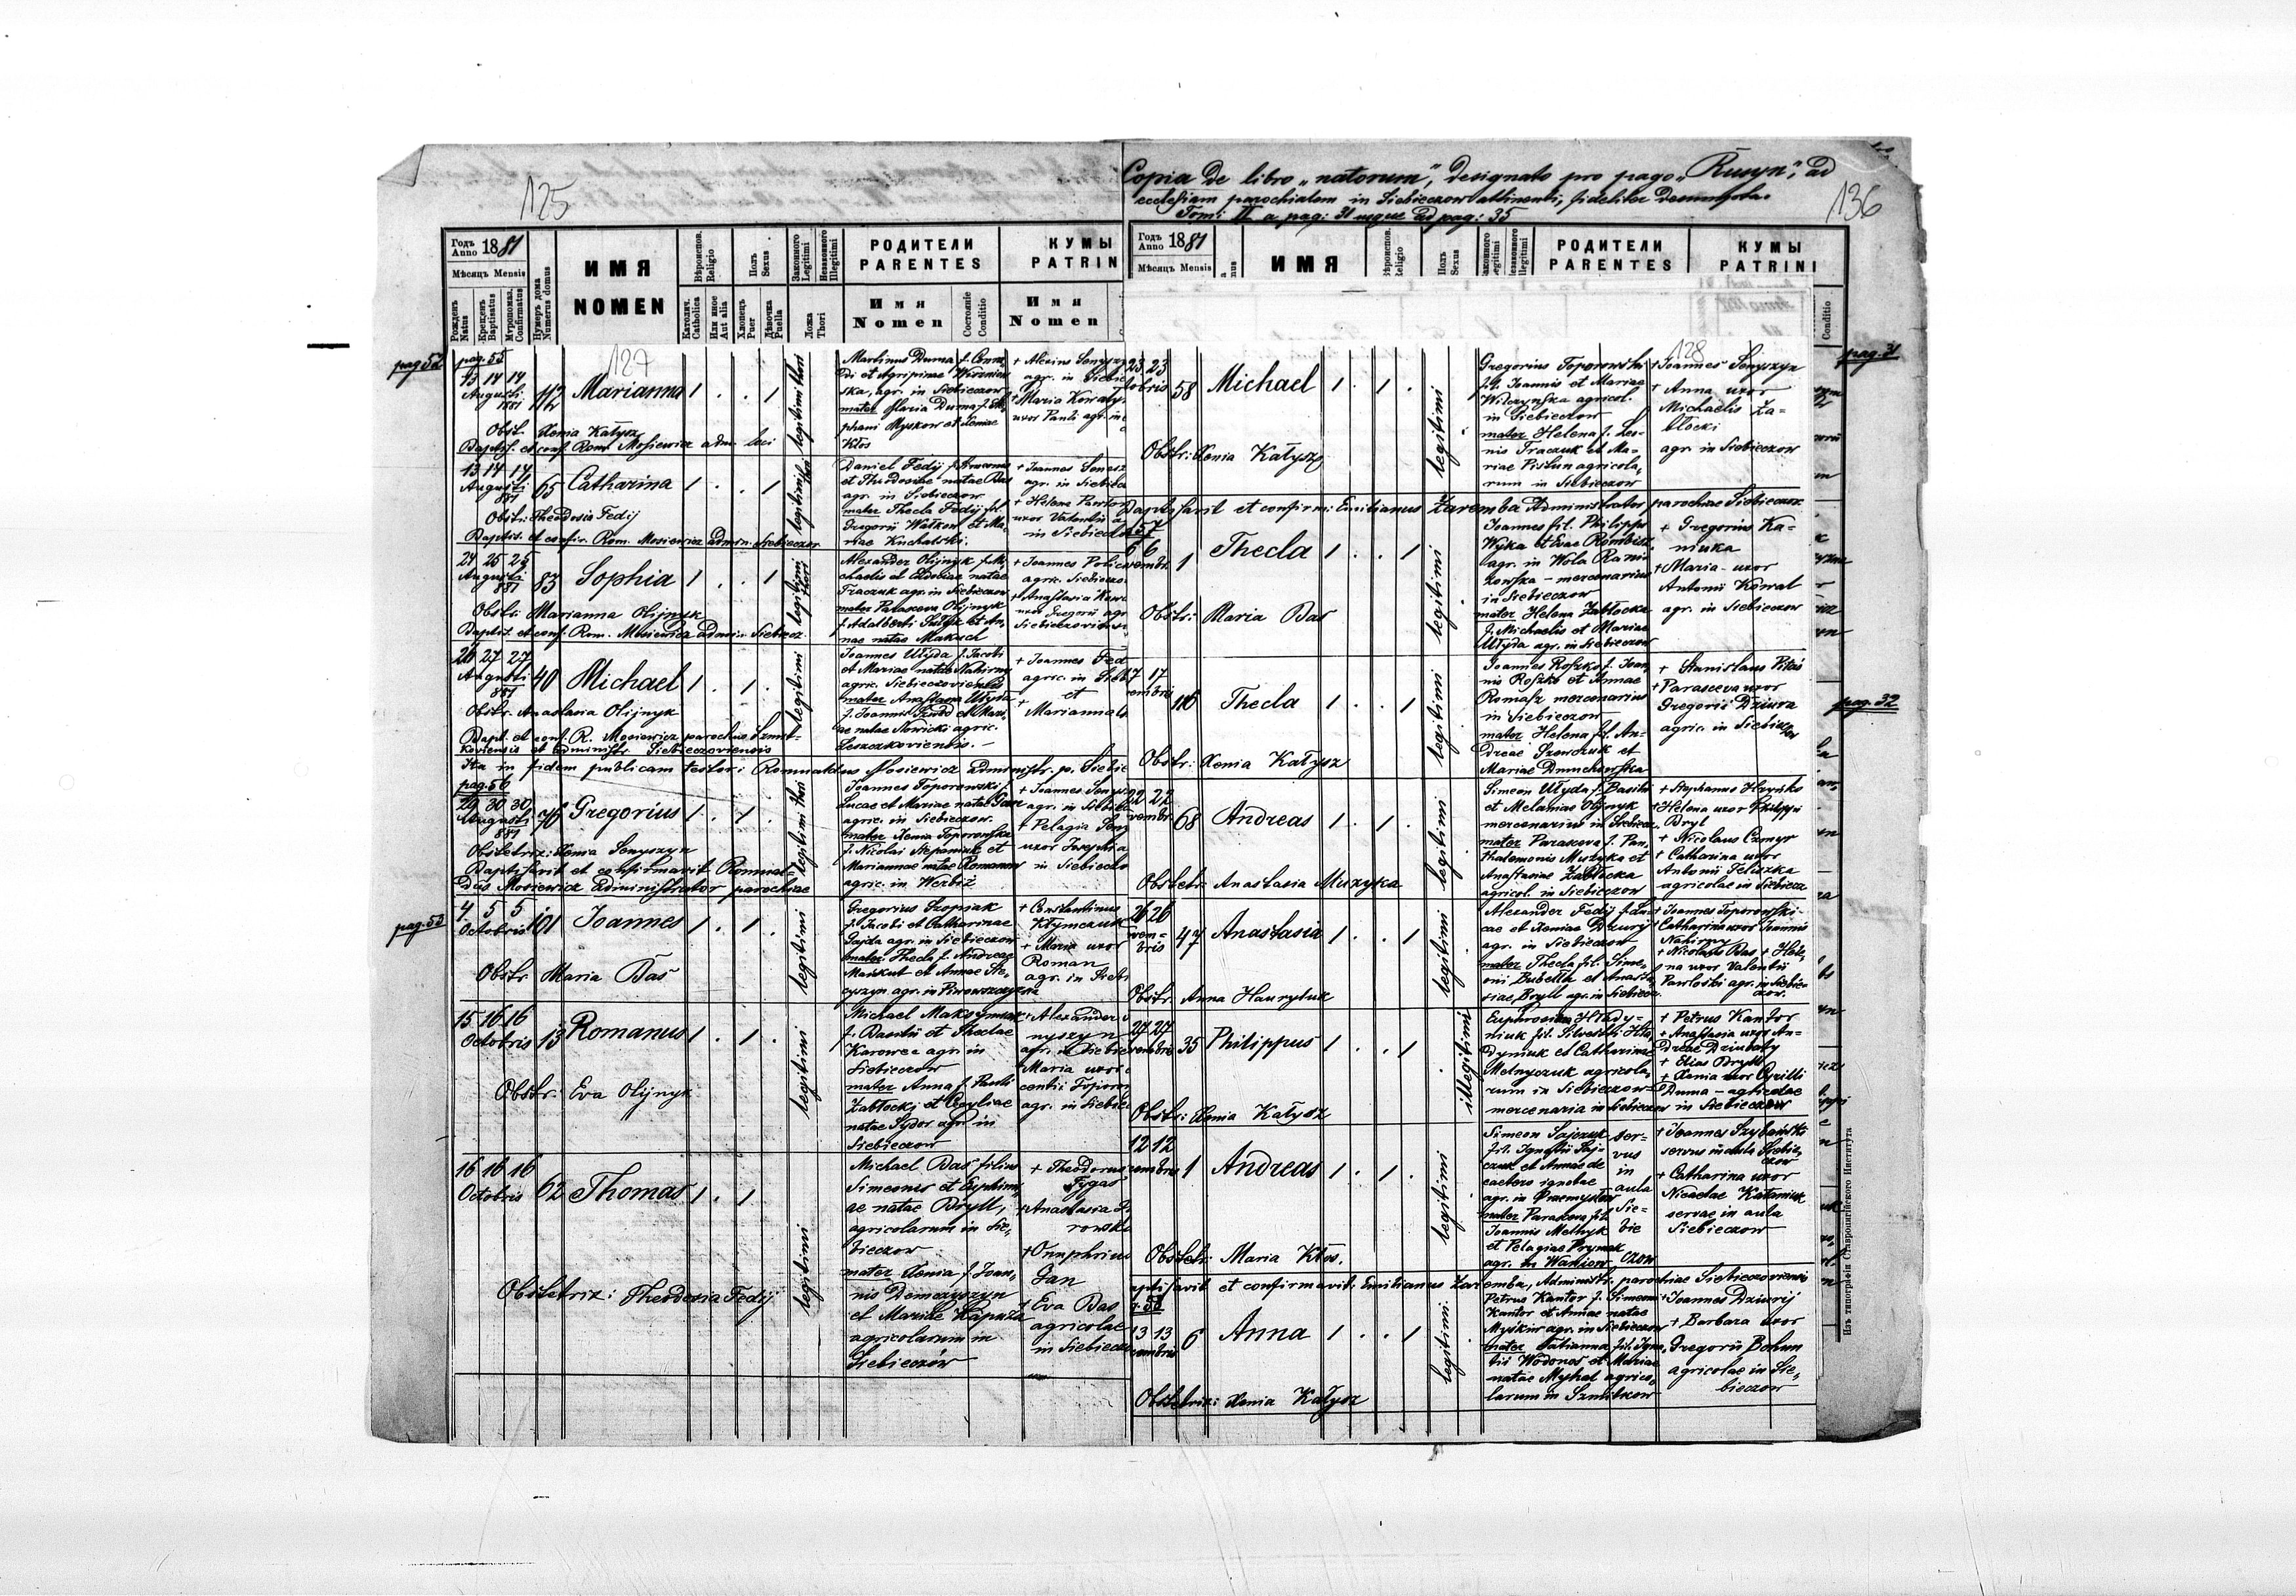 125
Copia de libro „natorum", designato pro pago „Rusyn", ad
136
ecclesiam parochialem in Siebieczow attinenti, fideliter
Tomi II a pag: 31 usque ad pag: 35
Годъ Anno 1881
Мѣсяць Mensis
Рожденъ Natus
Крещенъ Baptisatus
Мѵропомаз. Confirmatus
Нумеръ дома Numerus domus
ИМЯ
NOMEN
Вѣроиспов. Religio
Католич. Catholica
Или иное Aut alia
Полъ Sexus
Хлопець Puer
Дѣвочка Puella
Законного Legitimi
Незаконного Illegitimi
Ложа Thori
РОДИТЕЛИ
PARENTES
Имя
Nomen
Состояніе
Conditio
КУМЫ
PATRIN
Имя
Nomen
pag. 52
pag. 55
127
13 14 14
Augusti
1881
112
Marianna
1 . . 1
legitimi thori
Martinus Duma f.
di et Agripinae
ska, agr. in Siebieczow
mater Maria Duma f.
phani Myskow et Xeniae
Kłos
+ Alexius Sonyszy
agr. in Siebie
+ Maria Kowaly
uxor Pauli agr. in
Obst. Xenia Kałysz
Baptis. et conf. Rom. Mosiewicz adm. loci
13 14 14
Augusti
881
65
Catharina
1 . . 1
legitimi thori
Daniel Fedij f.
et Theodosiae natae Bas
agr. in Siebieczow
mater Thecla Fedij fil.
Gregorii Wałkow et Ma-
riae Kuchalski.
+ Joannes
agr. in Siebiecz
+ Helena Pawło
uxor Valentii a
in Siebieczo
Obstr: Theodosia Fedij
Baptis. et confir. Rom. Mosiewicz admin. Siebieczov.
24 25 25
Augusti
881
83
Sophia
1 . . 1
legitimi thori
Alexander Olijnyk f. Mi-
chaelis et Eudociae natae
Traczuk agr. in Siebieczow
mater Parascva Olijnyk
f. Adalberti et An-
nae natae Makuch
+ Joannes
agric. Siebieczo
+ Anastasia
uxor Gregorii agr
Obstr. Marianna Olijnyk
Baptiz. et conf. Rom. Mosiewicz admin. Siebiecz.
26 27 27
Augusti
881
40
Michael
1 . 1 .
legitimi
Joannes Ułyda f. Jacobi
et Mariae natae Nahirny
agric. Siebieczoviensis
mater Anastasia Ułyda
f. Joannis et Mari-
ae natae Nowicki agric.
Leszczkoviensis. —
+ Joannes Fed
agric. in Sieb
et
+ Marianna
Obstr. Anastasia Olijnyk
Bapt. et conf. R. Mosiewicz parochus Szmit-
koviensis et administr. Siebieczoviensis
Ita in fidem publicam testor: Romualdus Mosiewicz administr. p. Siebie
pag. 56
29 30 30
Augusti
881
76
Gregorius
1 . 1 .
legitimi thori
Joannes Toporowski f.
Lucae et Mariae natae
agric. in Siebieczow.
mater Xenia Toporowska
f. Nicolai Stepaniuk et
Mariannae natae Romanow
agric. in Werbiż
+ Joannes Sonysz
agr. in Siebiecz
+ Pelagia Sony
uxor Josephi a
in Siebieczo
Obstetrix: Xenia Sonyszyn
Baptisavit et confirmavit Romual-
dus Mosiewicz administrator parochiae
pag. 53
4. 5 5
Octobris
101
Joannes
1 . 1 .
legitimi
Gregorius Szopiak
f. Jacobi et Catharinae
Gajda agr. in Siebieczow
mater Thecla f. Andreae
Mańkut et Annae Sie-
cyszyn agr. in Piwowszczyzna
+ Constantinus
Kłymczuk
+ Maria uxor
Roman
agr. in Siebi
Obstr. Maria Bas
15 16 16
Octobris
13
Romanus
1 . 1 .
legitimi
Michael Maksymiuk
f. Basilii et Theclae
Karowec agr. in
Siebieczow
mater Anna f. Pauli
Zabłocki et Ceciliae
natae Sydor agr. in
Siebieczow
+ Alexander
nyszyn
agr. in Siebie
+ Maria uxor
centii Topor
agr. in Siebie
Obstr: Eva Olijnyk
16 16 16
Octobris
62
Thomas
1 . 1 .
legitimi
Michael Bas filius
Simeonis et Euphimi-
ae natae Bryll,
agricolarum in Sie-
bieczow
mater Xenia f. Joan-
nis Demczyszyn
et Mariae Kapuza
agricolarum in
Siebieczów
+ Theodorus
Fygas
+ Anastasia
rowska
+ Onuphrius
Gan
+ Eva Bas
agricolae
in Siebiecz
Obstetrix: Theodosia Fedij
Годъ Anno 1881
Мѣсяць Mensis
ИМЯ
Вѣроиспов. Religio
Полъ Sexus
РОДИТЕЛИ
PARENTES
КУМЫ
PATRINI
Conditio
128
pag. 31
23 23
tobris
58
Michael
1 . 1 .
legitimi
Gregorius Toporowski
f. Joannis et Mariae
Wilczyńska agricol.
in Siebieczow
mater Helena f. Leo-
nis Traczuk et Ma-
riae Pistun agricola-
rum in Siebieczow
+ Joannes Sonyszyn
+ Anna uxor
Michaelis Za-
błocki
agr. in Siebieczow
Obstr: Xenia Kałysz
Baptisavit et confirm: Emilianus Zaremba Administrator parochiae Siebieczow
57
6 6
vembr.
1
Thecla
1 . . 1
legitimi
Joannes fil. Philippi
Wyka et Evae Rombisz
agr. in Wola Rani-
żowska — mercenarius
in Siebieczow
mater Helena Zabłocka
f. Michaelis et Mariae
Ułyda agr. in Siebieczow
+ Gregorius Ka-
niuka
+ Maria — uxor
Antonii Kowal
agr. in Siebieczow
Obstr: Maria Bas
17 17
vembris
116
Thecla
1 . . 1
legitimi
Joannes Roszko f. Joan-
nis Roszko et Annae
Romasz mercenarius
in Siebieczow
mater Helena fil. An-
dreae Szewczuk et
Mariae Dmuchowska
+ Stanislaus Pitas
+ Parasceva uxor
Gregorii Dziura
agric. in Siebieczow
pag. 32
Obstr: Xenia Kałysz
22 22
vembr.
68
Andreas
1 . 1 .
legitimi
Simeon Ułyda f. Basilii
et Melaniae Olijnyk
mercenarius in Siebiecz.
mater Paraskeva f. Pan-
thalemonis Muzyka et
Anastasiae Zabłocka
agricol. in Siebieczow
+ Stephanus Hryćko
+ Helena uxor Philippi
Bryl
+ Nicolaus Czmyr
+ Catharina uxor
Antonii Feliszka
agricolae in Siebiecz
Obstetr: Anastasia Muzyka
26 26
vem-
bris
47
Anastasia
1 . . 1
legitimi
Alexander Fedij f. Lu-
cae et Xeniae Dziurij
agr. in Siebieczow
mater Thecla fil. Sime-
oni Bubella et Anasta-
siae Bryll agr. in Siebiecz.
+ Joannes Toporowski
+ Catharina uxor Joannis
Nahirny
+ Nicolaus Bas + Hele-
na uxor Valentii
Pawloski agr. in Siebie-
czow.
Obstr. Anna Hauryluk
27 27
vembris
35
Philippus
1 . . 1
illegitimi
Euphrosina Hłady-
niuk fil. Silvestri Hła-
dyniuk et Catharinae
Melnyczuk agricola-
rum in Siebieczow
mercenaria in Siebieczow
+ Petrus Kantor
+ Anastasia uxor An-
dreae Dziubaty
+ Elias Bryll
+ Xenia uxor Cyrilli
Duma — agricolae
in Siebieczow
Obstr: Xenia Kałysz
12 12
cembris
1
Andreas
1 . 1 .
legitimi
Simeon Sajczuk ser-
fil. Ignatii Saj- vus
czuk et Annae de in
caetero ignotae aula
agr. in Przemysłow Sie-
mater Paraskeva fil. bie
Joannis Melnyk
et Pelagiae Prymak
agr. in Waniow czow
+ Joannes Szybański
servus in aula Siebie-
czow
+ Catharina uxor
Nicolae Kataniuk
servae in aula
Siebieczow
Obstetr: Maria Kłos.
aptisavit et confirmavit: Emilianus Zaremba, Administr. parochiae Siebieczoviensis
58
13 13
cembris
6
Anna
1 . . 1
legitimi
Petrus Kantor f. Simeon
Kantor et Annae natae
Myskiw agr. in Siebieczow
mater Tatianna fil. Igna-
tii Wodonos et Mariae
natae Myhal agrico-
larum in Szmitkow
+ Joannes Dziurij
+ Barbara uxor
Gregorii Bohun
agricolae in Sie-
bieczow
Obstetrix: Xenia Kałysz
Изъ типографіи Ставропигійского Института